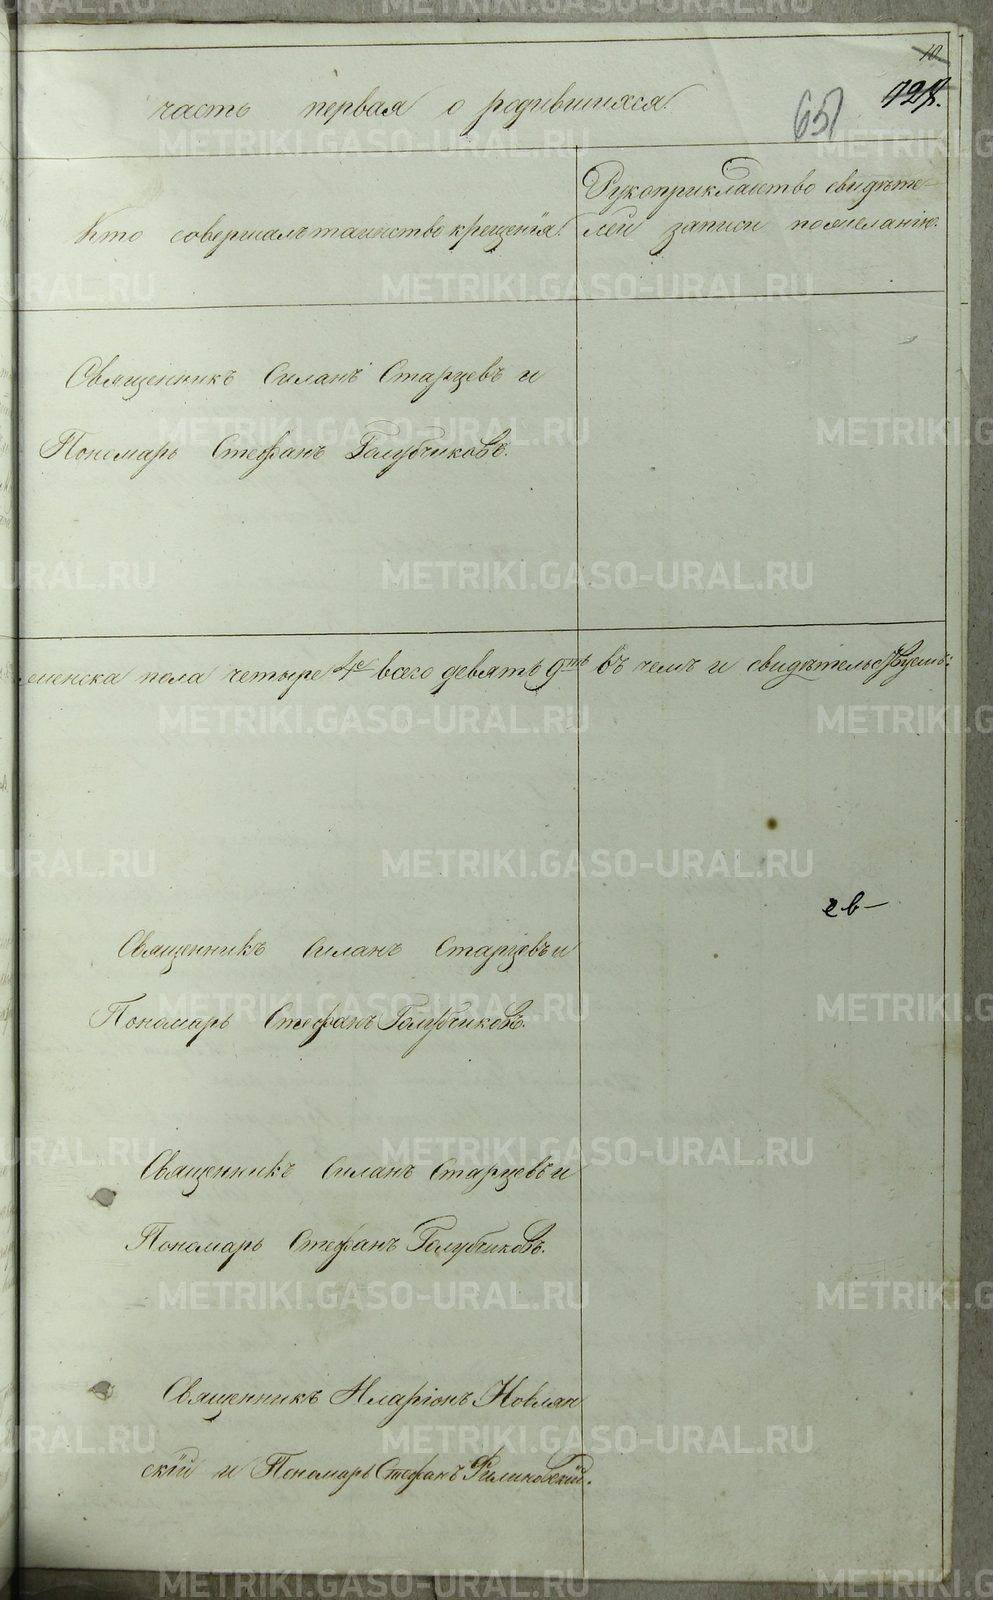 10
127.
651
часть первая о родившихся
Кто совершалъ таинство крещенія.
Рукоприкладство свидѣте-
лей записи пожеланію.
Священникъ Силанъ Старцевъ и
Пономарь Стефанъ Голубчиковъ.
женска пола четыре 4е всего девять 9ть въ чемъ и свидѣтельствуемъ:
Священникъ Силанъ Старцевъ и
Пономарь Стефанъ Голубчиковъ.
Священникъ Силанъ Старцевъ и
Пономарь Стефанъ Голубчиковъ.
Священникъ Иларіонъ Новлян
скій и Пономарь Стефанъ
METRIKI.GASO-URAL.RU